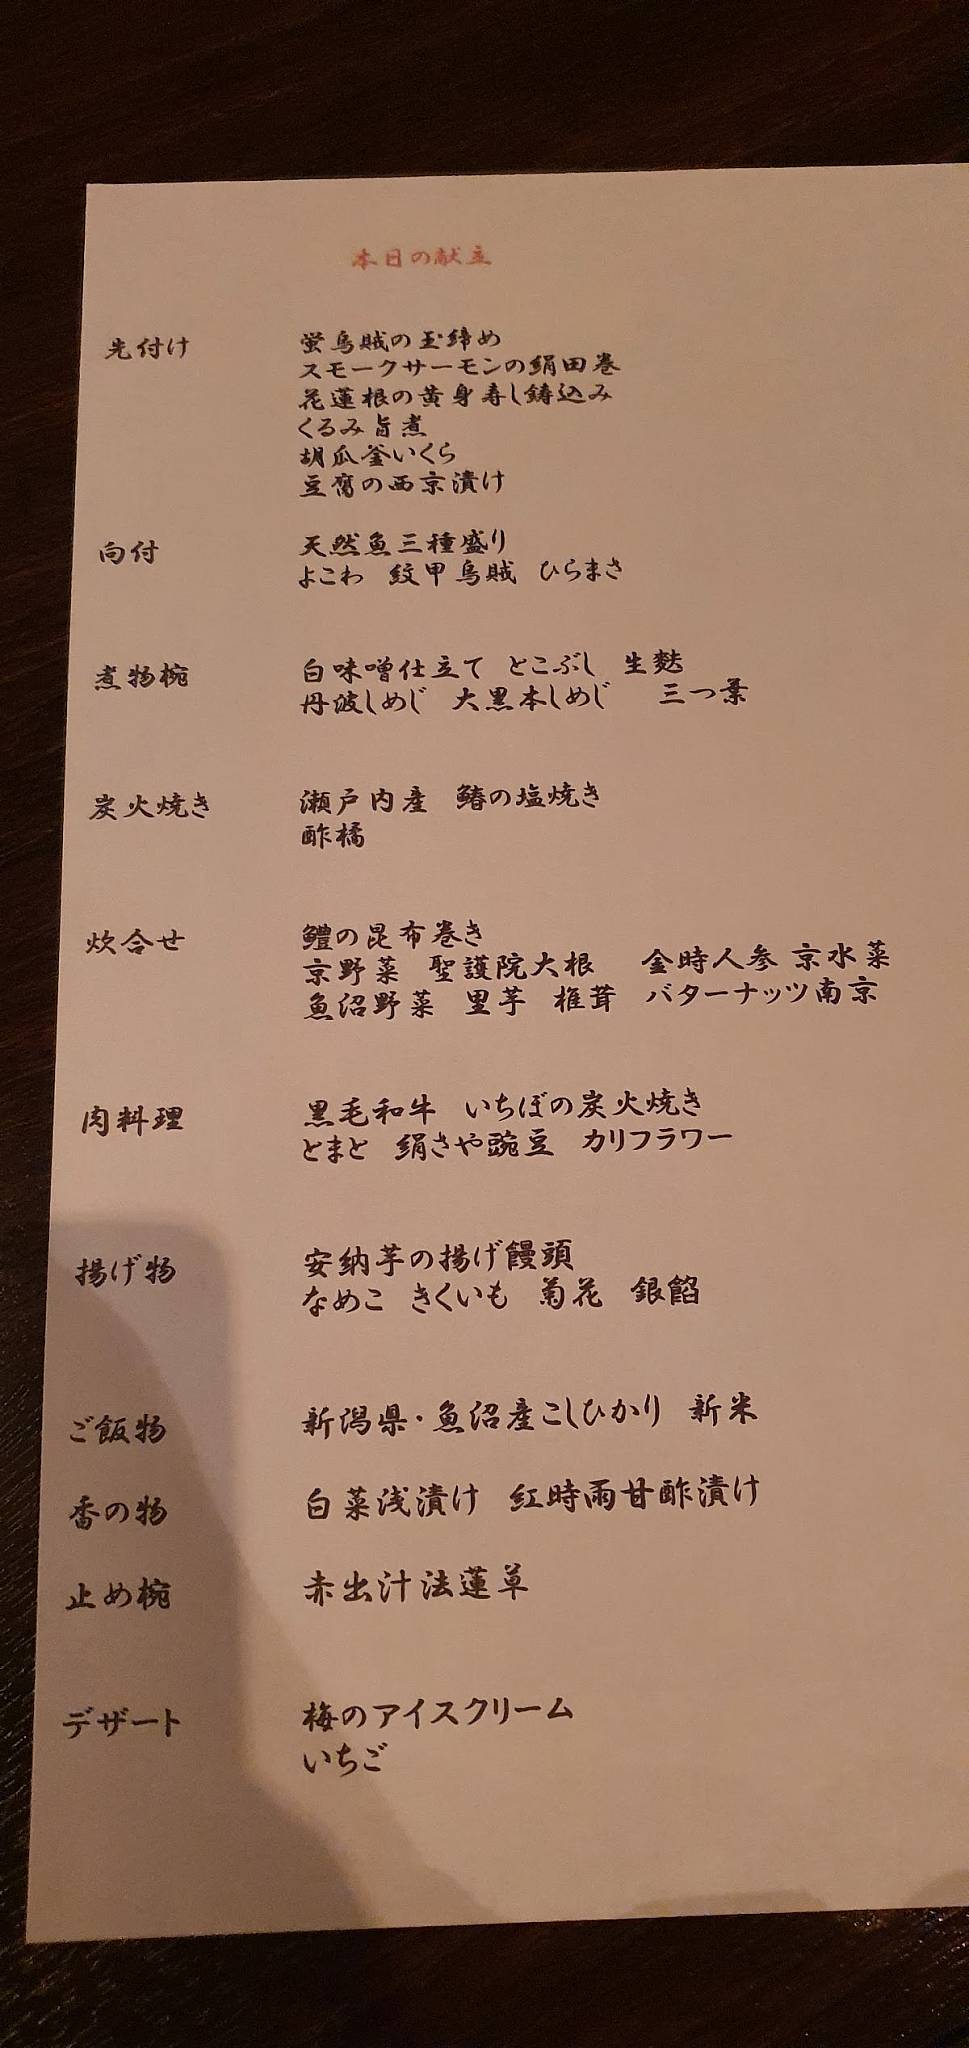 本日の献立
先付け 蛍烏賊の玉締め
スモークサーモンの絹田巻
花蓮根の黄身寿し鋳込み
くるみ旨煮
胡瓜釜いくら
豆腐の西京漬け
向付 天然魚三種盛り
よこわ 紋甲烏賊 ひらまさ
煮物椀 白味噌仕立て とこぶし 生麩
丹波しめじ 大黒本しめじ 三つ葉
炭火焼き 瀬戸内産 鰆の塩焼き
酢橘
炊合せ 鱧の昆布巻き
京野菜 聖護院大根 金時人参 京水菜
魚沼野菜 里芋 椎茸 バターナッツ南京
肉料理 黒毛和牛 いちぼの炭火焼き
とまと 絹さや豌豆 カリフラワー
揚げ物 安納芋の揚げ饅頭
なめこ きくいも 菊花 銀餡
ご飯物 新潟県・魚沼産こしひかり 新米
香の物 白菜浅漬け 紅時雨甘酢漬け
止め椀 赤出汁法蓮草
デザート 梅のアイスクリーム
いちご